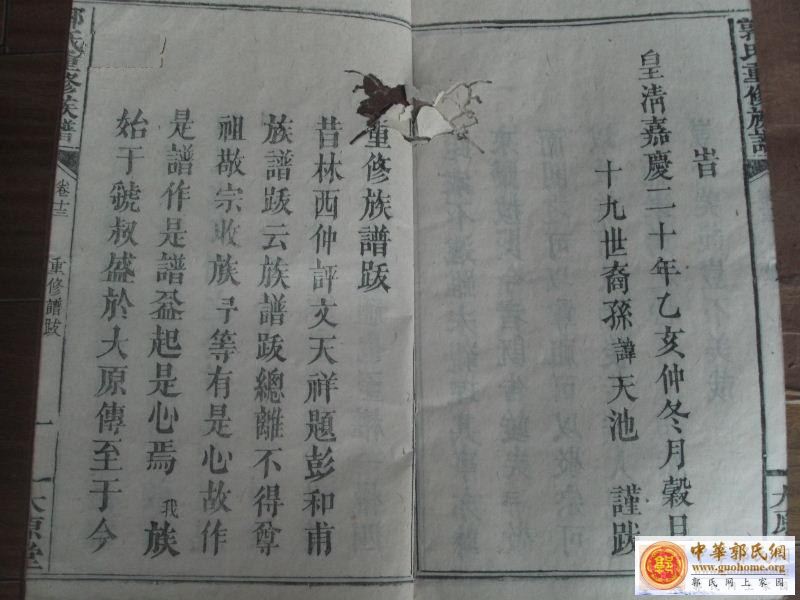 郭氏重修族譜
旹
皇清嘉慶二十年乙亥仲冬月穀日
十九世裔孫諱天池 謹跋
重修族譜跋
昔林西仲評文天祥題彭和甫
族譜跋云族譜跋總離不得尊
祖敬宗收族予等有是心故作
是譜作是譜益起是心焉我族
始于虢叔盛於大原傳至于今
郭氏重修族譜
重修譜跋
一
大原堂
中華郭氏網
www.guohome.org
郭氏网上家园